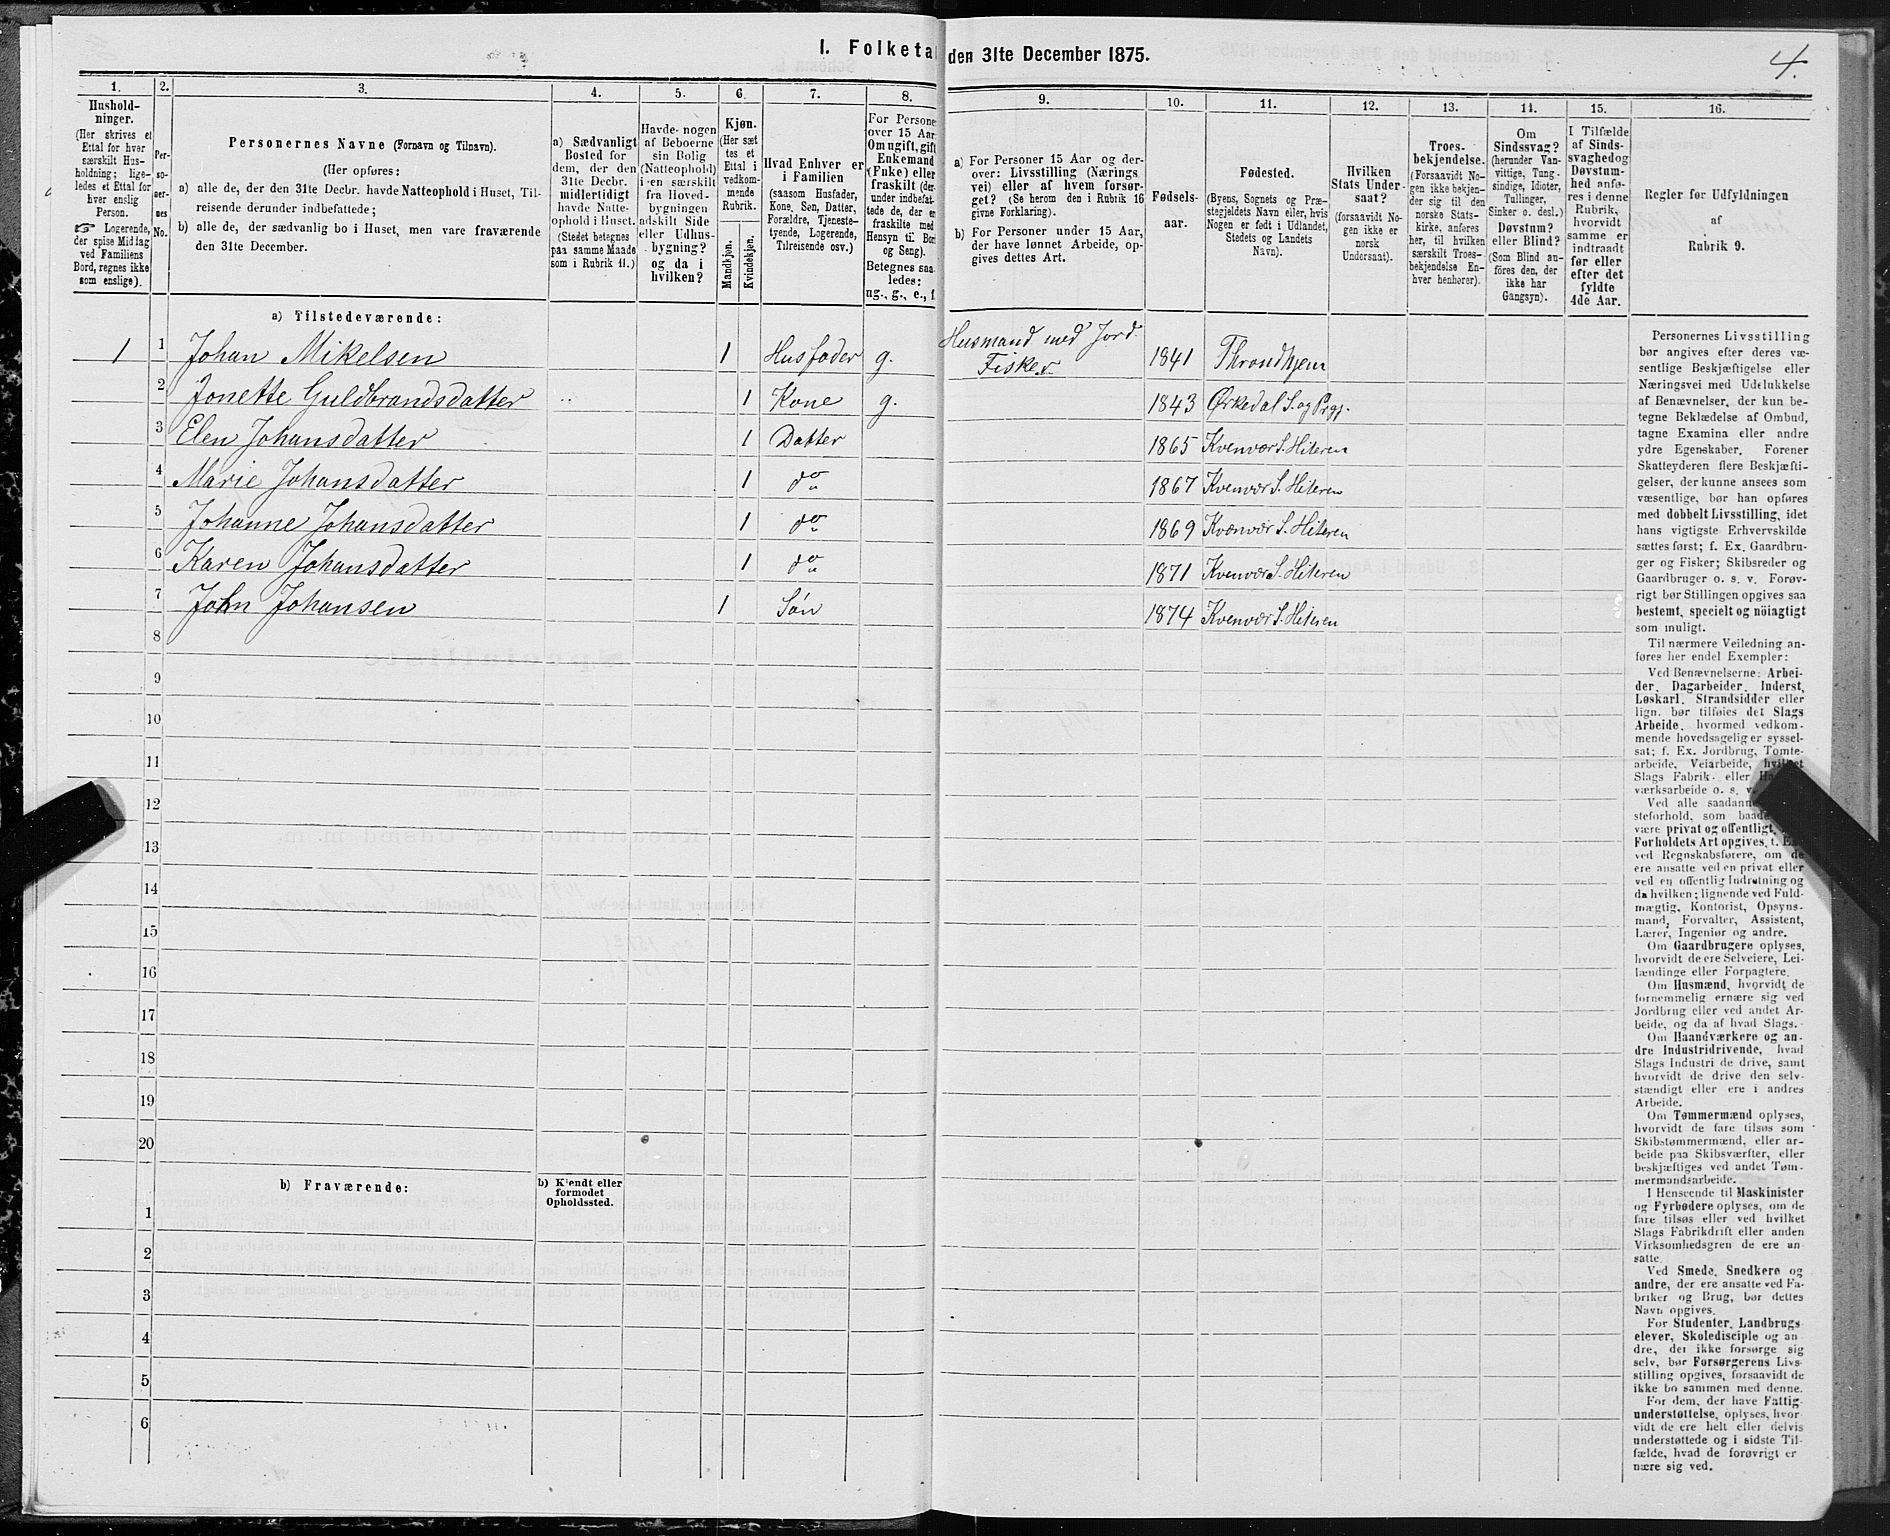 I. Folketal den 31te December 1875.
4.
1.
Hushold-
ninger.
(Her skrives et
Ettal for hver
særskilt Hus-
holdning; lige-
ledes et Ettal for
hver enslig
Person.
☞ Logerende,
der spise Middag
ved Familiens
Bord, regnes ikke
som enslige).
2.
Per-
so-
ner-
nes
No.
3.
Personernes Navne (Fornavn og Tilnavn).
(Her opføres:
a) alle de, der den 31te Decbr. havde Natteophold i Huset, Til-
reisende derunder indbefattede;
b) alle de, der sædvanlig bo i Huset, men vare fraværende
den 31te December.
4.
a) Sædvanligt
Bosted for
dem, der den
31te Decbr.
midlertidigt
havde Natte-
ophold i Huset.
(Stedet betegnes
paa samme Maade
som i Rubrik 11.)
5.
Havde nogen
af Beboerne
sin Bolig
(Natteophold)
i en særskilt
fra Hoved-
bygningen
adskilt Side
eller Udhus-
bygning?
og da i
hvilken?
6.
Kjøn.
(Her sæt
tes et
Ettal i
vedkom-
mende
Rubrik.
Mandkjøn.
Kvindekjøn.
7.
Hvad Enhver er
i Familien
(saasom Husfader,
Kone, Søn, Datter,
Forældre, Tjeneste-
tyende, Logerende,
Tilreisende osv.)
8.
For Persone
over 15 Aar
Om ugift, gift
Enkemand
(Enke) eller
fraskilt (der-
under indbefat-
tede de, der er
fraskilte med
Hensyn til Bord
og Seng).
Betegnes saa-
ledes:
ug., g., e., f.
9.
a) For Personer 15 Aar og der-
over: Livsstilling (Nærings
vei) eller af hvem forsør-
get? (Se herom den i Rubrik 16
givne Forklaring).
b) For Personer under 15 Aar,
der have lønnet Arbeide, op-
gives dettes Art.
10.
Fødsels-
aar.
11.
Fødested.
(Byens, Sognets og Præ-
stegjeldets Navn eller, hvis
Nogen er født i Udlandet,
Stedets og Landets
Navn).
12.
Hvilken
Stats Under-
saat?
(forsaavidt No-
gen ikke er
norsk
Undersaat).
13.
Troes-
bekjendelse.
(Forsaavidt No-
gen ikke bekjen-
der sig til den
norske Stats-
kirke, anføres
her, til hvilken
særskilt Troes-
bekjendelse En-
hver henhører).
14.
Om
Sindssvag?
(herunder Van-
vittige, Tung-
sindige, Idioter,
Tullinger,
Sinker o. desl.)
Døvstum?
eller Blind?
(Som Blind an-
føres den, der
ikke har
Gangsyn).
15.
I Tilfælde
af Sinds-
svaghedog
Døvstum-
hed anfø-
res i denne
Rubrik,
hvorvidt
samme er
indtraadt
før eller
efter det
fyldte
4de Aar.
16.
Regler for Udfyldningen
af
Rubrik 9.
a) Tilstedeværende:
1 1 Johan Mikelsen 1 Husfader g. Husmand med Jord. Fisker 1841 Throndhjem
2 Jonette Guldbrandsdatter 1 Kone g. 1843 Ørkedal S. og Prgj.
3 Elen Johansdatter 1 Datter 1865 Kvenvær S. Hiteren
4 Marie Johansdatter 1 do 1867 Kvenvær S. Hiteren
5 Johanne Johansdatter 1 do 1869 Kvænvær S. Hiteren
6 Karen Johansdatter 1 do 1871 Kvenvær S. Hiteren
7 John Johansen 1 Søn 1874 Kvenvær S. Hiteren
8
9
10
11
12
13
14
15
16
17
18
19
20
b) Fraværende:
b) Kjendt eller
formodet
Opholdssted.
1
2
3
4
5
6
Personernes Livsstilling
bør angives efter deres væ-
sentlige Beskjæftigelse eller
Næringsvei med Udelukkelse
af Benævnelser, der kun be-
tegne Beklædelse af Ombud,
tagne Examina eller andre
ydre Egenskaber. Forener
Skatteyderen flere Beskjæfti-
gelser, der kunne ansees som
væsentlige, bør han opføres
med dobbelt Livsstilling, idet
hans vigtigste Erhvervskilde
sættes først; f. Ex. Gaardbru-
ger og Fisker; Skibsreder og
Gaardbruger o. s. v. Forøv-
rigt bør Stillingen opgives saa
bestemt, specielt og nöiagtigt
som muligt.
Til nærmere Veiledning an-
føres her endel Exempler:
Ved Benævnelserne: Arbei-
der, Dagarbeider, Inderst,
Løskarl, Strandsidder eller
lign. bør tilføies det Slags
Arbeide, hvormed vedkom-
mende hovedsagelig er syssel-
sat; f. Ex. Jordbrug, Tomte-
arbeide, Veiarbeide, hvilket
Slags Fabrik- eller
værksarbeide o. s. v.
Ved alle saadanne
steforhold, som baade
være privat og offentligt,
Forholdets Art opgives, t. Ex.
ved Regnskabsførere, om de
ere ansatte ved en privat eller
ved en offentlig Indretning og
da hvilken; lignende ved Fuld-
mægtig, Kontorist, Opsyns-
mand, Forvalter, Assistent,
Lærer, Ingeniør og andre.
Om Gaardbrugere oplyses,
hvorvidt de ere Selveiere, Lei-
lændinge eller Forpagtere.
Om Husmænd, hvorvidt de
fornemmelig ernære sig ved
Jordbrug eller ved andet Ar-
beide, og da af hvad Slags.
Om Haandværkere og an-
dre Industridrivende, hvad
Slags Industri de drive, samt
hvorvidt de drive den selv-
stændigt eller ere i andres
Arbeide.
Om Tømmermænd oplyses,
hvorvidt de fare tilsøs som
Skibstømmermænd, eller ar-
beide paa Skibsværfter, eller
beskjæftiges ved andet Tøm-
mermandsarbeide.
I Henseende til Maskinister
og Fyrbødere oplyses, om de
fare tilsøs eller ved hvilket
Slags Fabrikdrift eller anden
Virksomhedsgren de ere an-
satte.
Ved Smede, Snedkere og
andre, der ere ansatte ved Fa-
briker og Brug, bør dettes
Navn opgives.
For Studenter, Landbrugs-
elever, Skoledisciple og an-
dre, der ikke forsørge sig
selv, bør Forsørgerens Livs-
stilling opgives, forsaavidt de
ikke bo sammen med denne.
For dem, der have Fattig-
understøttelse, oplyses, hvor-
vidt de ere helt eller delvis
understøttede og i sidste Til-
fælde, hvad de forøvrigt er-
nære sig ved.